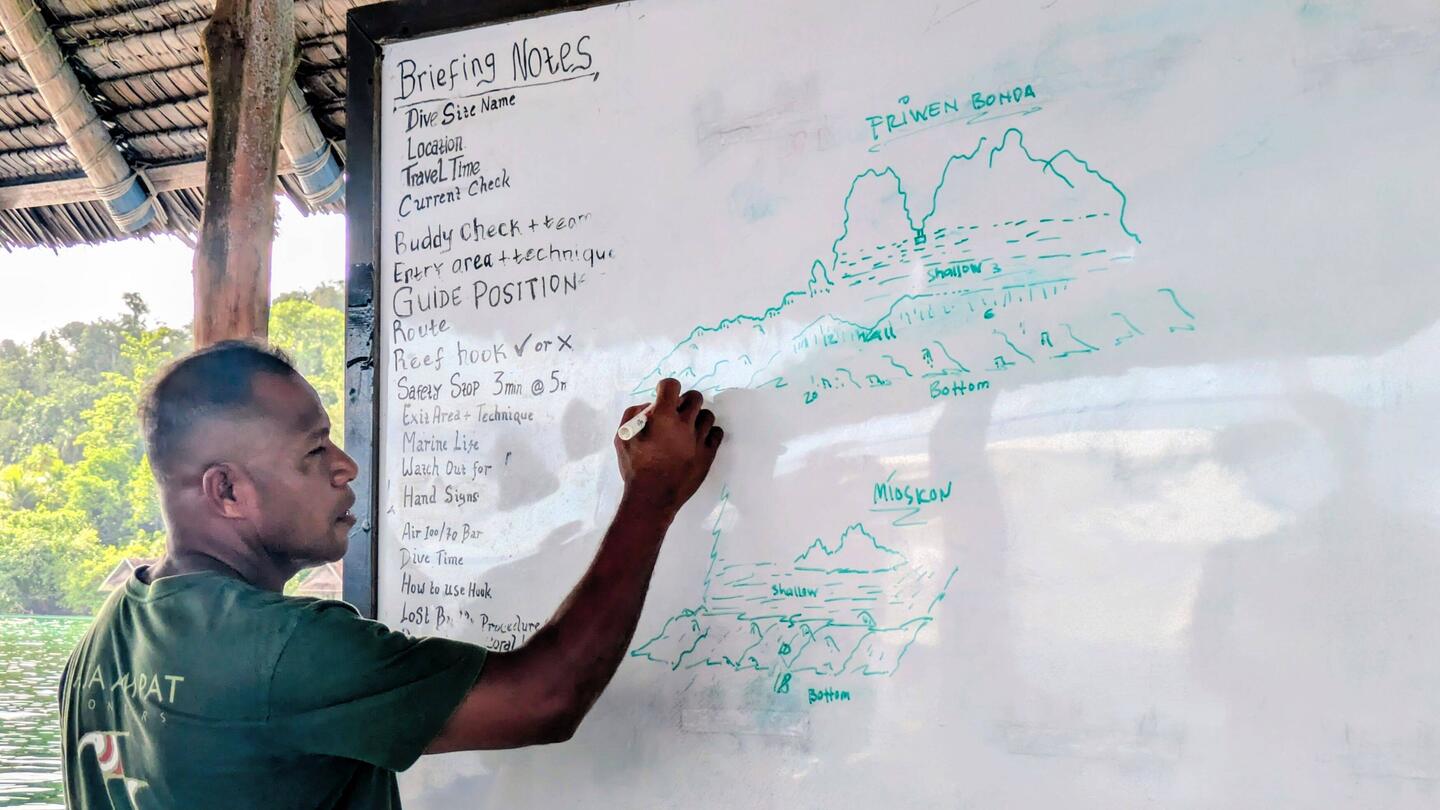 Briefing Notes
Dive Site Name
Location
Travel Time
Current Check
Buddy check + team
Entry area + technique
GUIDE POSITION
Route
Reef hook ✓ or X
Safety Stop 3min @ 5m
Exit Area + Technique
Marine Life
Watch Out for
Hand Signs
Air 100/70 Bar
Dive Time
How to use Hook
Lost Procedure
FRIWEN BONDA
Shallow 3
6
20
Bottom
MIOSKON
Shallow
5
18
Bottom
AMPAT